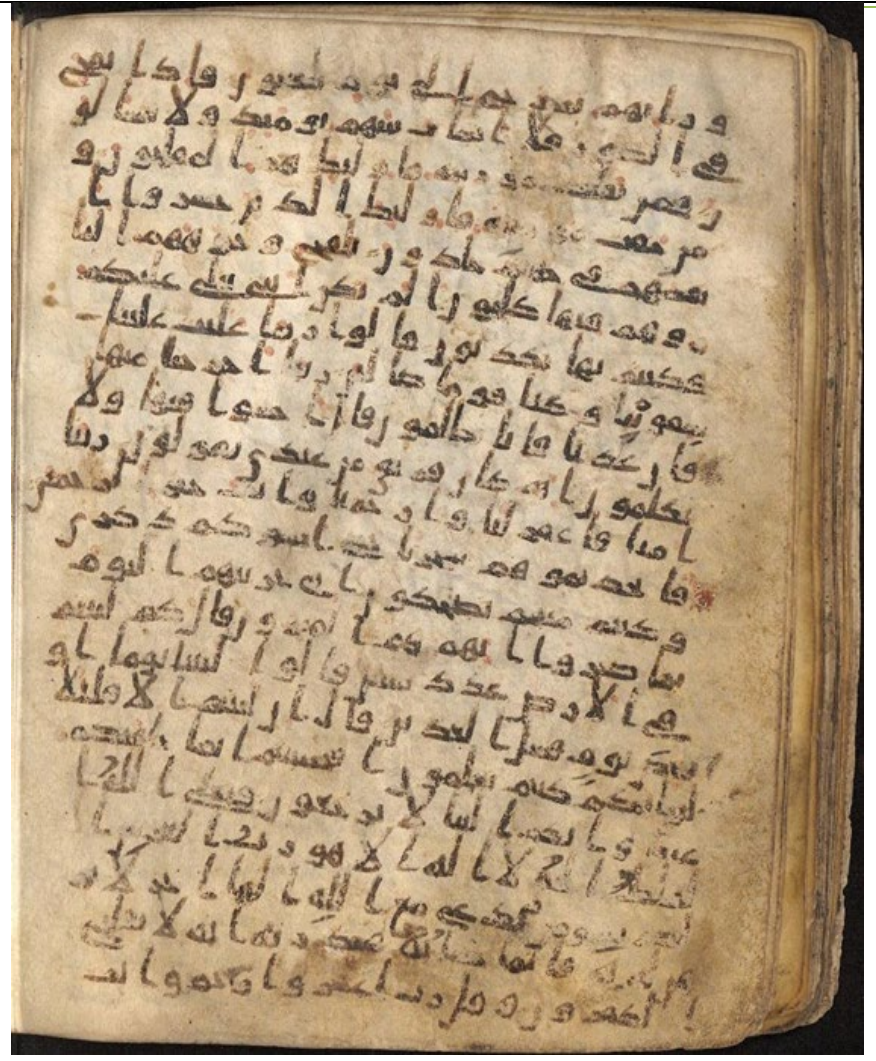 و رايهم برزخ الى يوم يبعثون فاذا نفخ
في الصور فلا انساب بينهم يومئذ ولا يتسالو
ن فمن ثقلت موزينه فاولئك هم المفلحون و
من خفت موزينه فاولئك الذين خسروا ا
نفسهم في جهنم خلدون تلفح وجوههم النا
ر وهم فيها كلحون الم تكن ايتي تتلى عليكم
فكنتم بها تكذبون قالوا ربنا غلبت علينا
شقوتنا وكنا قوما ضالين ربنا اخرجنا منها
فان عدنا فانا ظلمون قال اخسوا فيها ولا
تكلمون انه كان فريق من عبدي يقولون ربنا
امنا فاغفر لنا وارحمنا وانت خير الرحمين
فاتخذتموهم سخريا حتى انسوكم ذكري
وكنتم منهم تضحكون اني جزيتهم اليوم
بما صبروا انهم هم الفايزون قل كم لبثتم
في الارض عدد سنين قالوا لبثنا يوما او
بعض يوم فسل العدين قل ان لبثتم الا قليلا
لو انكم كنتم تعلمون افحسبتم انما خلقنكم
عبثا وانكم الينا لا ترجعون فتعلى الله ا
لملك الحق لا اله الا هو رب العرش ا
لكريم ومن يدع مع الله الها اخر لا بر
هن له به فانما حسابه عند ربه انه لا يفلح
الكفرون وقل رب اغفر وارحم وانت